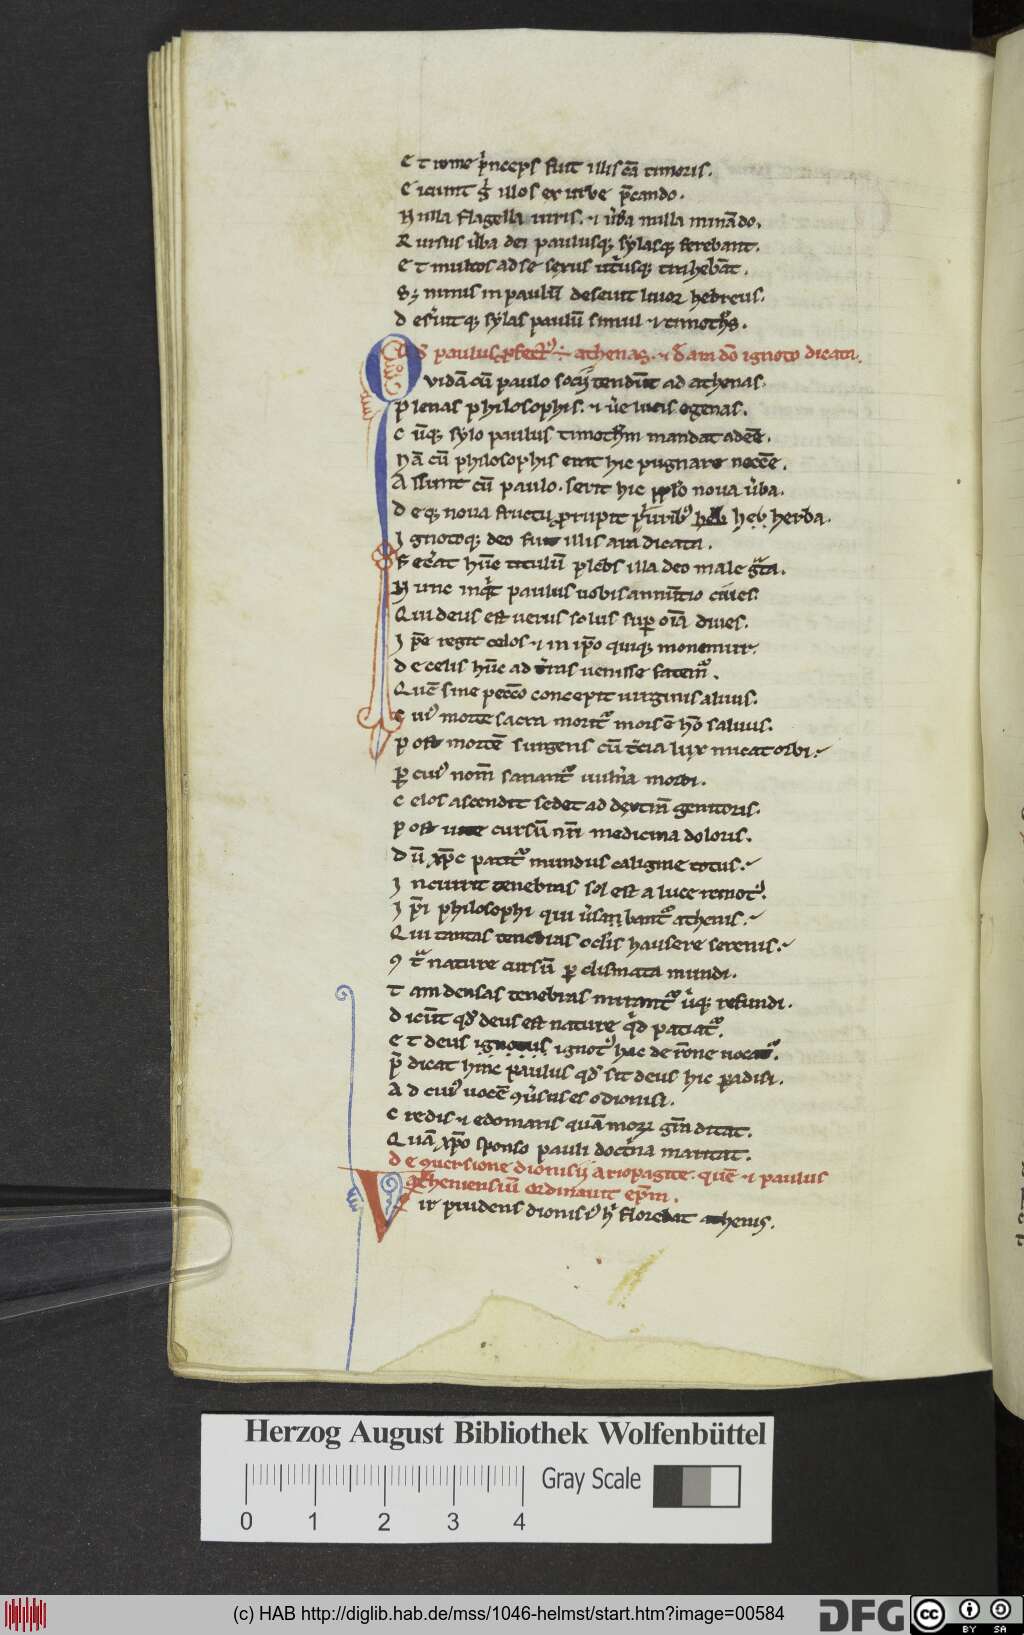 Et rome p̄nceps fuit illis cā timoris.
Eiciunt ḡ illos ex urbe p̄cando.
Nulla flagella viris. ⁊ v̄ba nulla minādo.
Rursus v̄ba dei paulusq; sylasq; ferebant.
Et multos ad se seruus
S; minus in paulū deseuit liuor hebreus.
Des'uitq; sylas paulū simul ⁊ timoth's.
paulus athenas. ⁊ d' ara dō ignoto dicata.
Quidā cū paulo socij tendūt ad athenas.
Plenas philosophis. ⁊ v̄e lucis egenas.
Cūq; sylo paulus timothm̄ mandat adēē.
Nā cū philosophis erit hic pugnare necēē.
Assunt cū paulo. serit hic noua v̄ba.
Deq; noua fructu prupit herba.
Ignotoq; deo fuit illis ara dicata.
Fec'at hūc titulū plebs illa deo male gͣta.
Nunc inqͥt paulus uobis annūtio ciues.
Qui deus est uerus solus sup oīa diues.
Ip̄e regit celos ⁊ in ip̄o quiq; monemur.
De celis hūc ad t'ras uenisse fatemʳ.
Quē sine pecc̄o concepit uirginis aluus.
Cuiꝰ morte sacra moritʳ mors ē hō saluus.
Post mortē surgens cū t'cia lux micat orbi
P cuiꝰ nom̄ sanantʳ uuln̄a morbi.
Celos ascendit sedet ad dextrā genitoris.
Post cursū nr̄i medicina doloris.
Dū xp̄c patitʳ mundus caligine totus
Incurrit tenebras sol est a luce remotꝰ.
Ip̄i philosophi qui v̄sabantʳ athenis.
Qui tantas tenebras oc̄lis hausere serenis.
ꝯtͣ nature cursū p clismata mundi.
Tam densas tenebras mirantʳ refundi.
Dicūt qd' deus est nature qͥd patiatʳ.
Et deus ignotus ignotꝰ hac de r̄one uocatʳ.
P̄dicat hinc paulus qd' sit deus hic padisi.
Ad cuiꝰ uocē ꝯu'sus es o dionisi.
Credis ⁊ edomaris quā mox gr̄a ditat.
Quā xp̄o sponso pauli doct'na maritat.
De ꝯuersione dionisij ariopagite. quē ⁊ paulus
atheniensiū ordinauit ep̄m.
Vir prudens dionisiꝰ hͥ florebat athenis.
Herzog August Bibliothek Wolfenbüttel
0 1 2 3 4
Gray Scale
(c) HAB http://diglib.hab.de/mss/1046-helmst/start.htm?image=00584
DFG
cc
BY SA